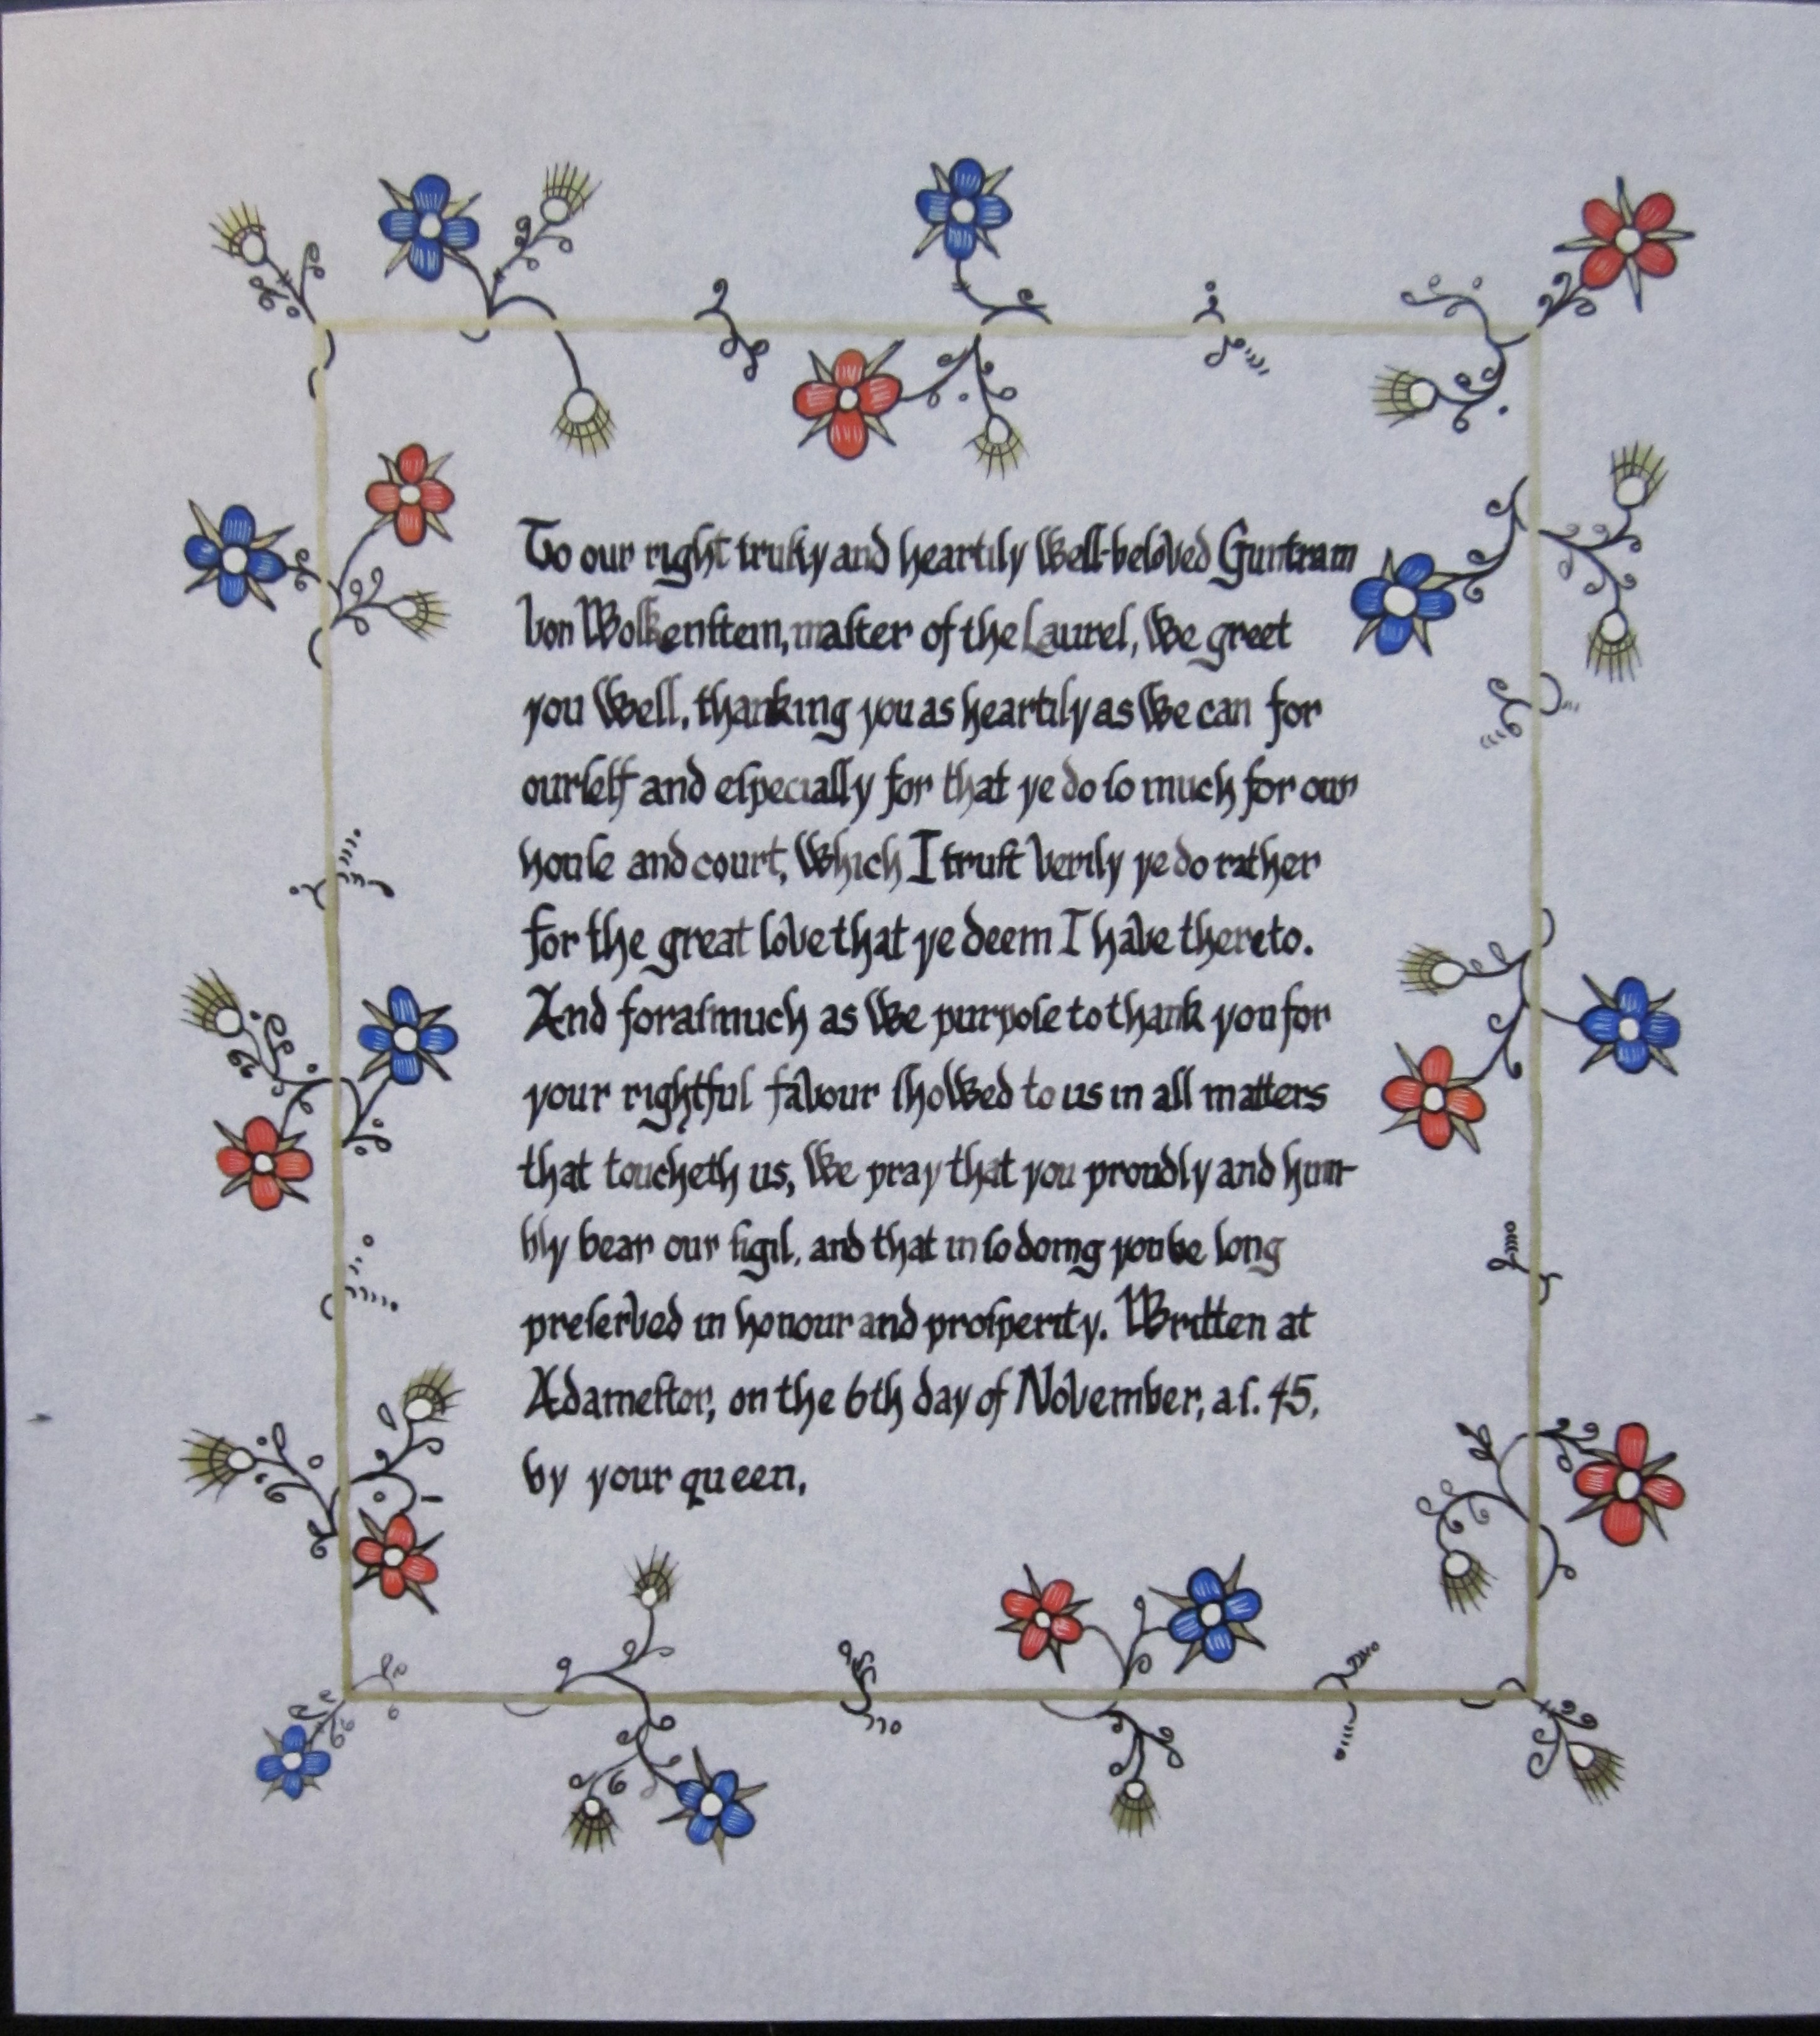 To our right truſty and heartily well-beloved Guntram
von Wolkenſtein, maſter of the Laurel, we greet
you well, thanking you as heartily as we can for
ourſelf and eſpecially for that ye do ſo much for our
houſe and court, which I truſt verily ye do rather
for the great love that ye deem I have thereto.
And foraſmuch as we purpoſe to thank you for
your rightful favour ſhowed to us in all matters
that toucheth us, we pray that you proudly and hum-
bly bear our ſigil, and that in ſo doing you be long
preſerved in honour and proſperity. Written at
Adameſtor, on the 6th day of November, a.ſ. 45,
by your queen,